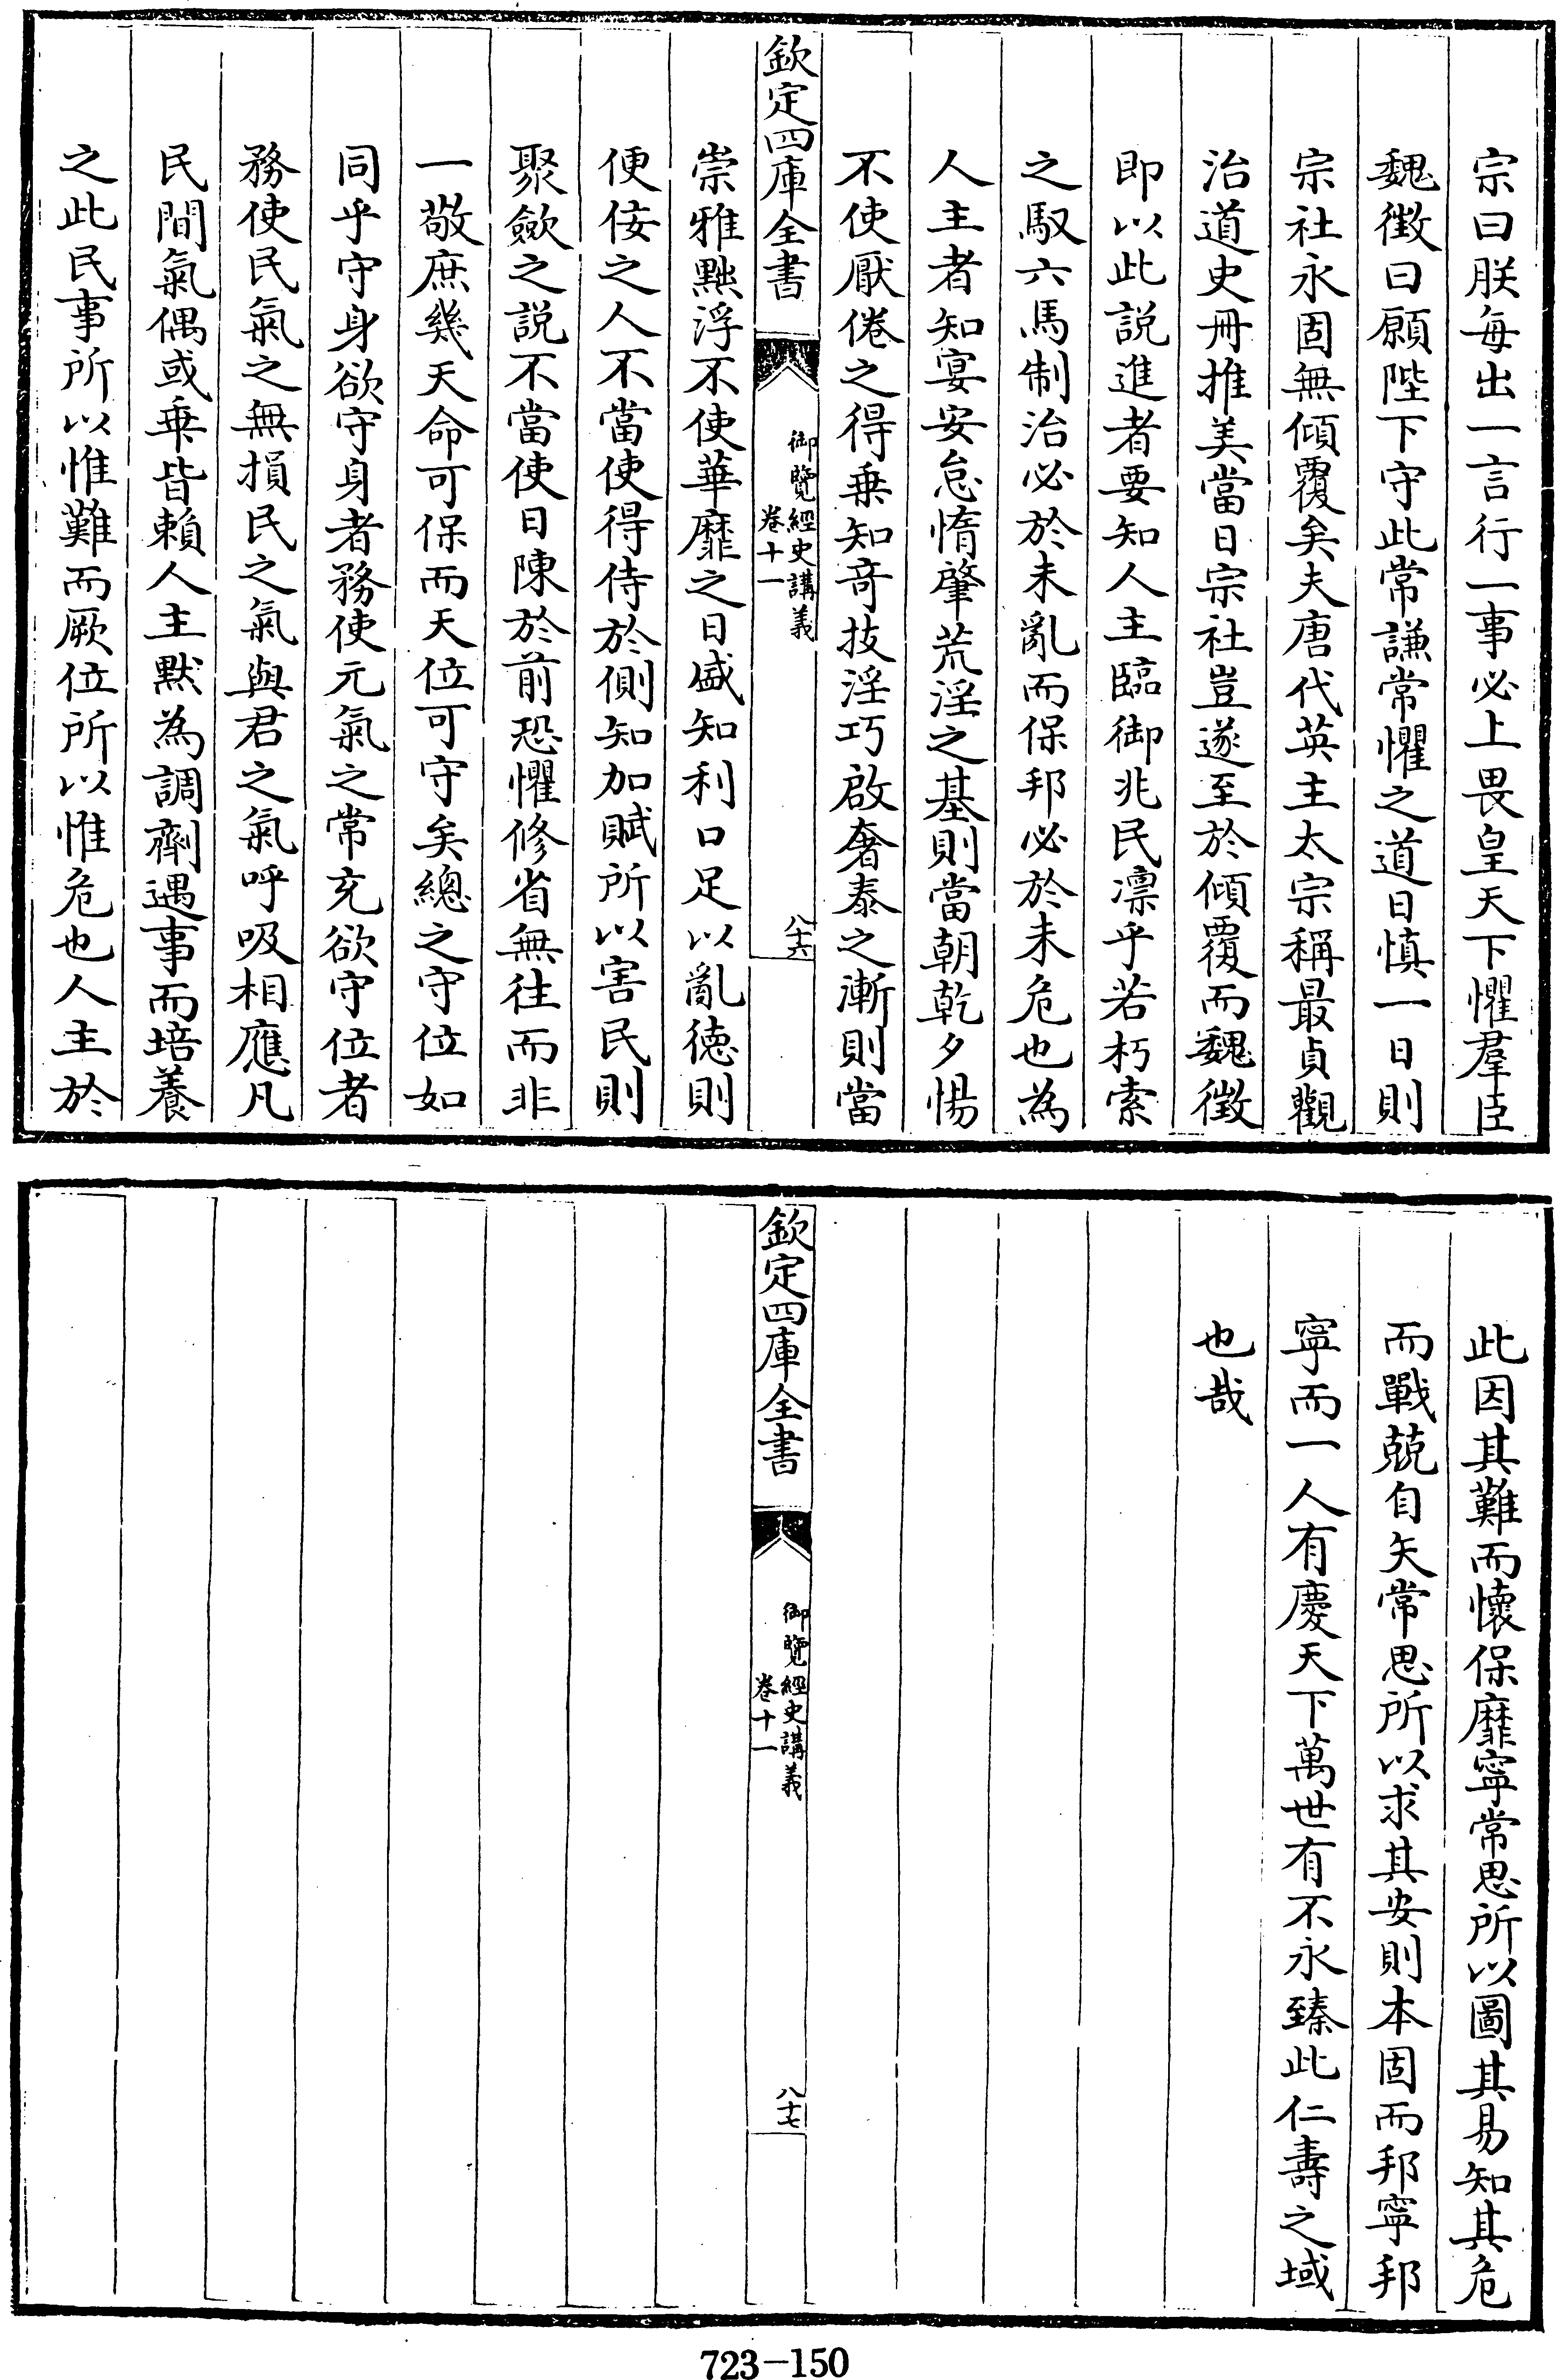 宗曰朕每出一言行一事必上畏皇天下懼羣臣
魏徴曰願陛下守此常謙常懼之道日慎一日則
宗社永固無傾覆矣夫唐代英主太宗稱最貞觀
治道史冊推美當日宗社豈遂至於傾覆而魏徴
即以此説進者要知人主臨御兆民凛乎若朽索
之馭六馬制治必於未亂而保邦必於未危也為
人主者知宴安怠惰肇荒淫之基則當朝乾夕惕
不使厭倦之得乗知竒技淫巧啟奢泰之漸則當
欽定四庫全書
御覽經史講義
卷十一
八十六
崇雅黜浮不使華靡之日盛知利口足以亂徳則
便佞之人不當使得侍於側知加賦所以害民則
聚歛之説不當使日陳於前恐懼修省無往而非
一敬庶幾天命可保而天位可守矣總之守位如
同乎守身欲守身者務使元氣之常充欲守位者
務使民氣之無損民之氣與君之氣呼吸相應凡
民間氣偶或乗皆賴人主默為調劑遇事而培養
之此民事所以惟難而厥位所以惟危也人主於
此因其難而懷保靡寧常思所以圖其易知其危
而戰兢自矢常思所以求其安則本固而邦寧邦
寧而一人有慶天下萬世有不永臻此仁壽之域
也哉
欽定四庫全書
御覽經史講義
卷十一
八十七
723-150